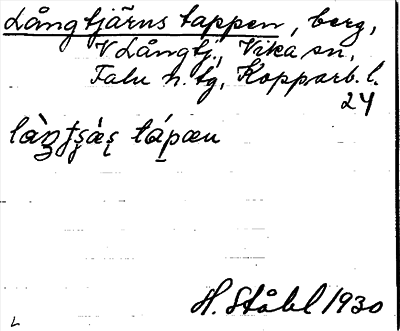 Långtjärnstappen, berg,
V Långtj., Vika sn,
Falu n. tg, Kopparb. l.
24
H. Ståhl 1930
L